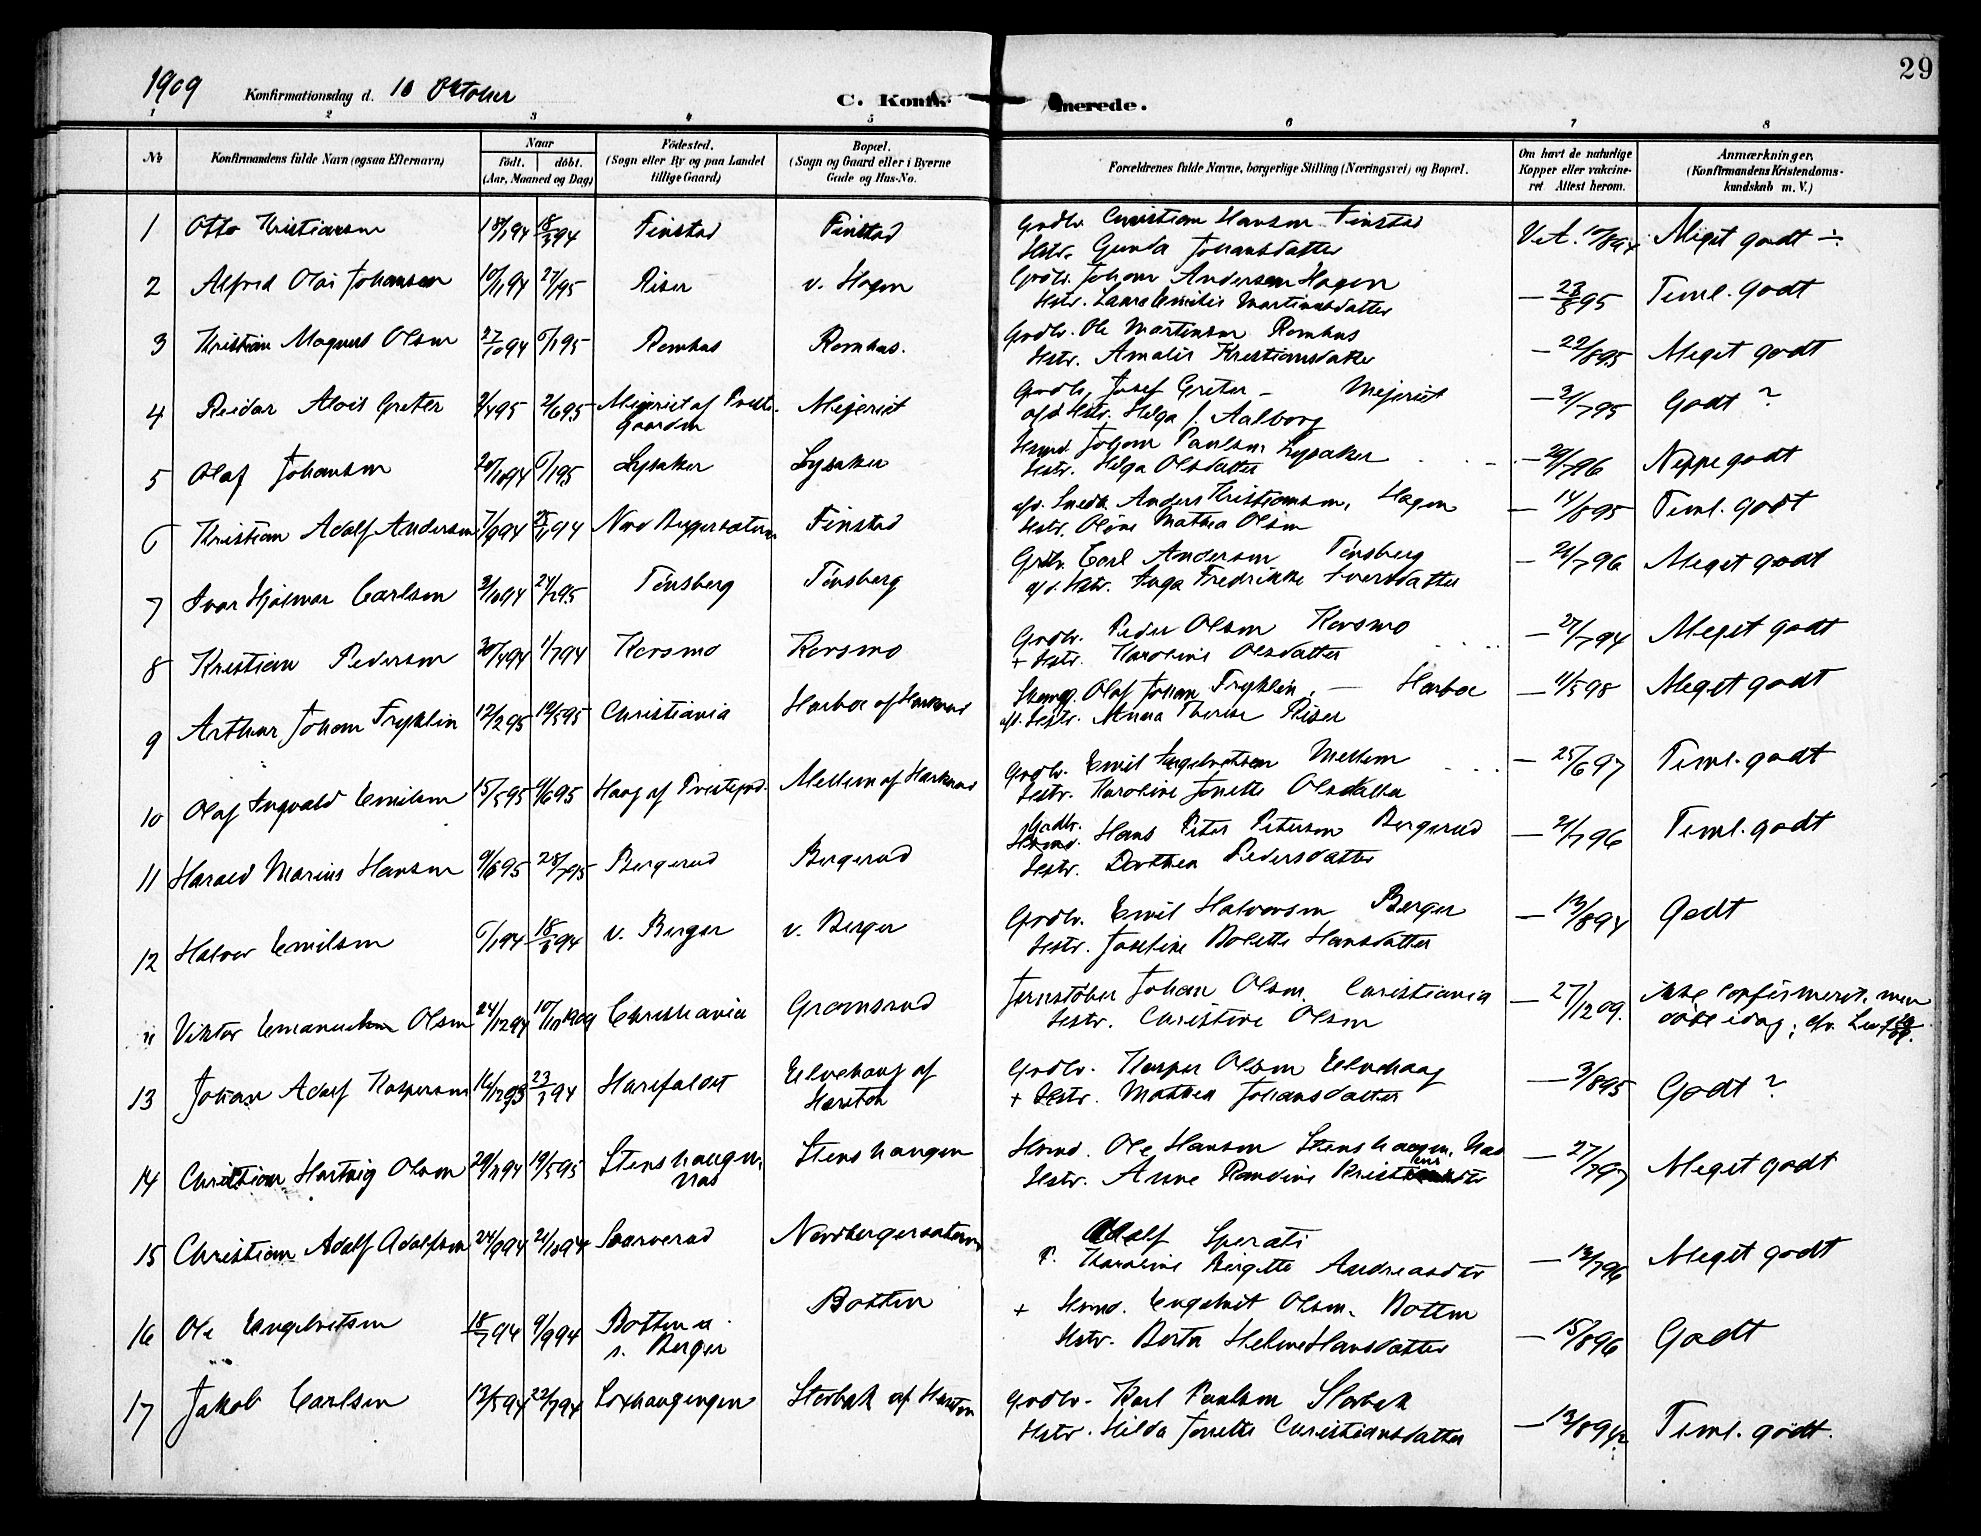 29
1909 Konfirmationsdag d. 10 Oktober
C. Konfirmerede.
1 2 3 4 5 6 7 8
No Konfirmandens fulde Navn (ogsaa Efternavn)
Naar
født. døbt.
(Aar, Maaned og Dag)
Fødested.
(Sogn eller By og paa Landet
tillige Gaard)
Bopæl.
(Sogn og Gaard eller i Byerne
Gade og Hus-No.
Forældrenes fulde Navne, borgerlige Stilling (Næringsvei) og Bopæl.
Om havt de naturlige
Kopper eller vakcine-
ret Attest herom.
Anmærkninger.
(Konfirmandens Kristendoms-
kundskab m. V.)
1 Otto Kristiansen 18/1 94 18/3 94 Finstad Finstad
Grdbr. Christian Hansen Finstad
Hstr. Gunda Johansdatter
V.A. Meget godt ÷
2 Alfred Olai Johansen 27/1 95 Riser v. Hagen
Grdbr. Johan Andersen Hagen
Hstr. Laura Emilie Martinusdatter
— 23/8 95 Teml. godt
3 Kristian Magnus Olsen 27/10 94 6/1 95 Romhus Romhus.
Grdbr. Ole Martinsen Romhus
Hstr. Amalie Kristiansdatter
— 22/8 95 Meget godt
4 Reidar Alois Greter 2/4 95 2/6 95 Mejeriet af Preste-
gaarden
Mejeriet
Josef Greter — Mejeriet
Hstr. Helga f. Aalborg
— 2/7 95 Godt ?
5 Olaf Johansen 20/10 94 6/1 95 Lysaker Lysaker
Hsmd Johan Paulsen Lysaker
Hstr. Helga Olsdatter
— 29/7 96 Neppe godt
6 Kristian Adolf Andersen 7/9 94 Finstad
Anders Kristiansen, Hagen
Hstr. Oline Mathea Olsen
— 14/8 95 Teml. godt
7 Ivar Hjalmar Carlsen 3/10 94 24/2 95 Tønsberg Tønsberg
Grdbr. Carl Andersen Tønsberg
Hstr. Inga Fredrikke Iversdatter
— 21/7 96 Meget godt
8 Kristian Pedersen 30/4 94 1/7 94 Korsmo Korsmo
Grdbr. Peder Olsen Korsmo
+ Hstr. Karoline Olsdatter
— 27/7 94 Meget godt
9 Arthur Johan Fryklin 12/2 95 19/5 95 Christiania
Olaf Johan Fryklin. —
Hstr. Anna Therese Riser
— 11/5 98 Meget godt
10 Olaf Ingvald Emilsen 15/5 95 9/6 95 Haag af Prestegrd. Mellem af Harknas
Grdbr. Emil Ingebretsen Mellem
Hstr. Karoline Jonette Olsdatter
— 25/6 97 Teml. godt
11 Harald Marius Hansen 9/6 95 28/7 95 Bergerud Bergerud
Grdbr.
Hsmd. Hans Peter Petersen Bergerud
Hstr. Dorthea Pedersdatter
— 21/7 96 Teml. godt
12 Halvor Emilsen 6/1 94 18/3 94 v. Berger v. Berger
Grdbr. Emil Halvorsen Berger
Hstr. Josefine Bolette Hansdatter
— 13/8 94 Godt
" Viktor Emanuel Olsen 24/12 94 10/10 1909 Christiania Gramsrud
Jernstøber Johan Olsen Christiania
Hstr. Christine Olsen
— 27/12 09. ikke confirmeret, men
døbt idag;
13 Johan Adolf Kaspersen 16/12 93 23/3 94 Harefaldet Elvehaug af
Grdbr. Kasper Olsen Elvehaug
+ Hstr. Mathea Johansdatter
— 3/8 95 Godt ?
14 Christian Hartvig Olsen 19/5 95 Stenshaugen,
Nas
Stenshaugen
Hsmd. Ole Hansen Stenshaugen, Nas
Hstr. Anne Randine
— 27/7 97 Meget godt
15 Christian Adolf Adolfsen 24/9 94 21/10 94 Nordbergersæteren
Adolf Sperati
P. Karoline Birgitte Andreasdtr
— 13/7 96 Meget godt
16 Ole Engebretsen 18/7 94 9/9 94 Botten u.
s. Berger
Botten
+ Hsmd. Engebret Olsen. Botten
Hstr. Berta Helene Hansdatter
— 15/8 96 Godt
17 Jakob Carlsen 13/5 94 22/7 94 Storbæk af
Grdbr. Karl Paulsen Storbæk
Hstr. Hilda Jonette Christiansdatter
— Teml. godt.